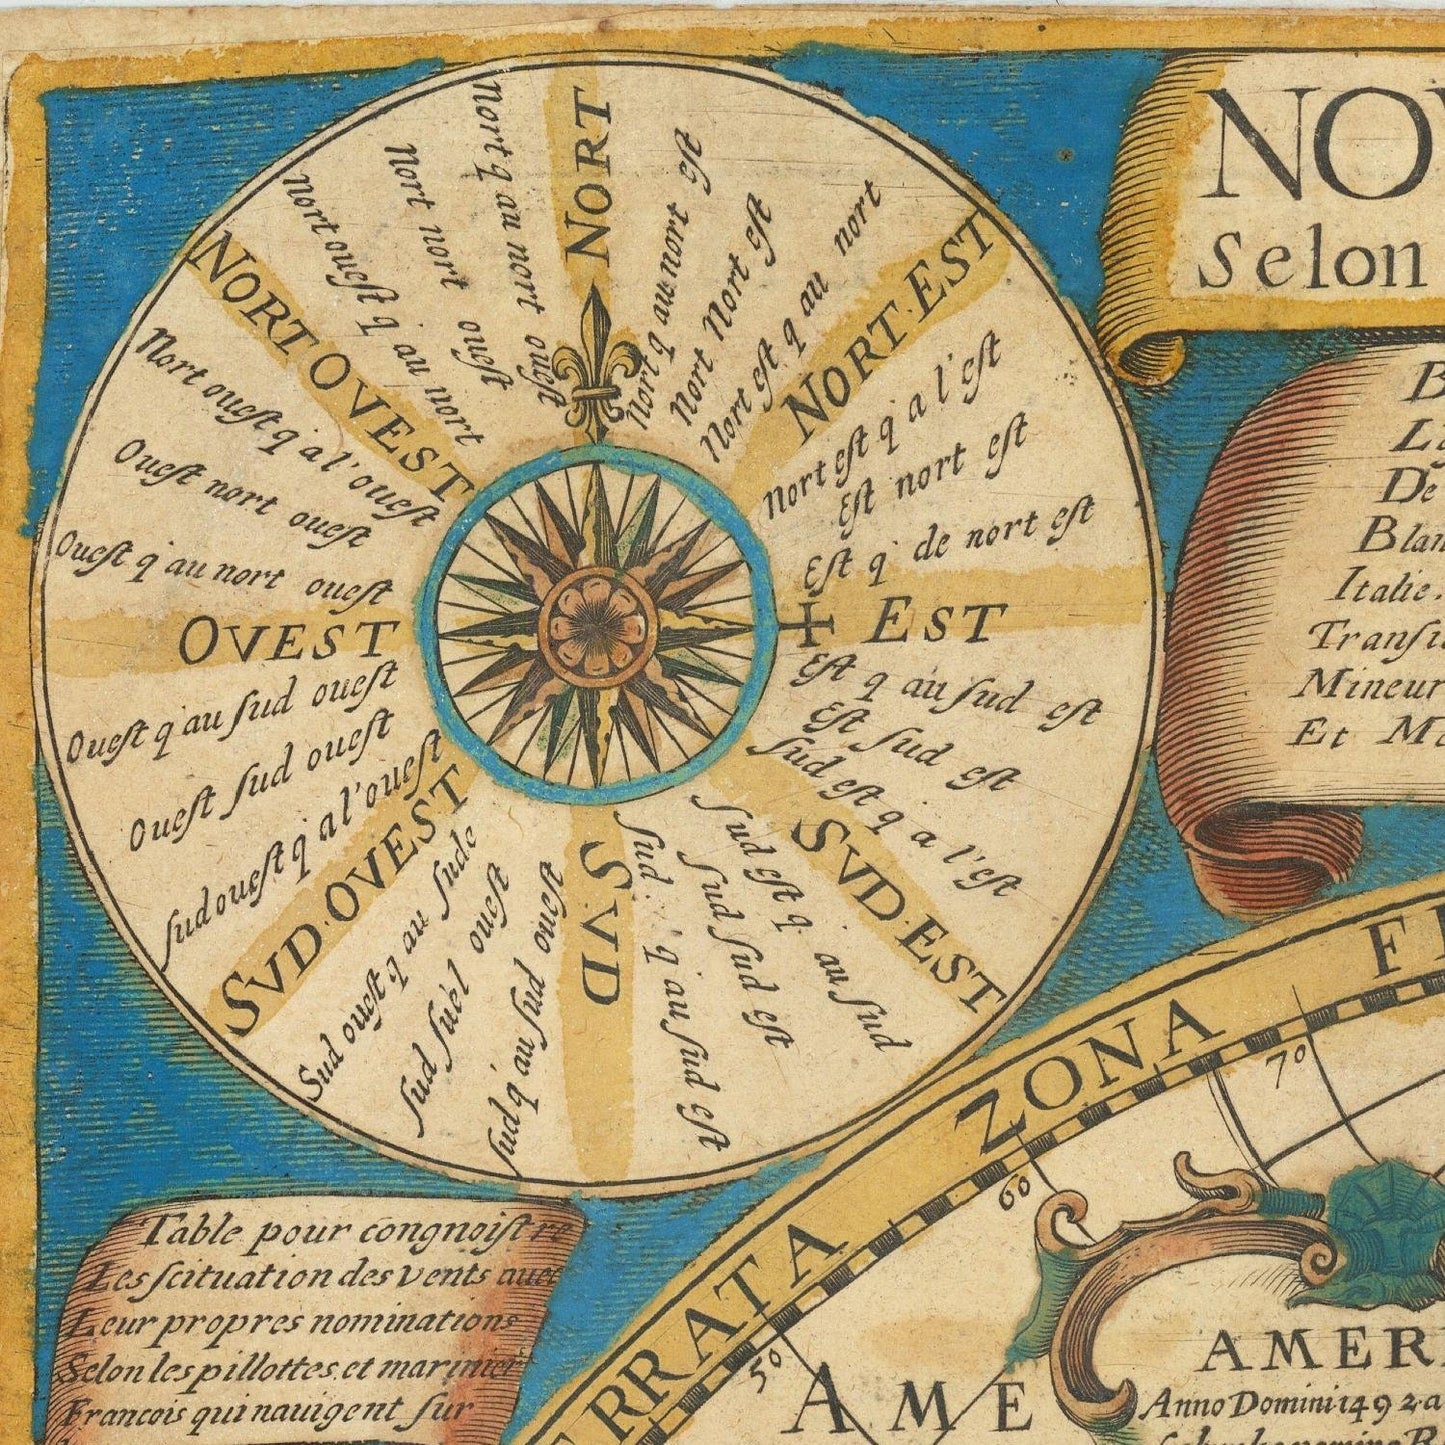 NORT
Nort q au nort est
Nort Nort est
Nort est q au nort
NORT·EST
Nort est q a l'est
Est nort est
Est q' de nort est
EST
Est q au sud est
Est sud est
sud est q' a l'est
SVD·EST
sud est q' au sud
sud sud est
sud q' au sud est
SVD
sud q' au sud ouest
sud suel ouest
Sud ouest q' au sude
SVD·OVEST
sud ouest q' a l'ouest
Ouest sud ouest
Ouest q' au sud ouest
OVEST
Ouest q' au nort ouest
Ouest nort ouest
Nort ouest q' a l'ouest
NORT OVEST
Nort ouest q' au nort
Nort nort ouest
Nort q au nort ouest
Selon
Italie.
Mineur
Et
Table pour congnoistre
Les scituation des vents auec
Leur propres nominations
Selon les pillottes et marinier
Francois qui nauigent sur
ZONA
50
60
70
AME
AMER
Anno Domini 1492 a